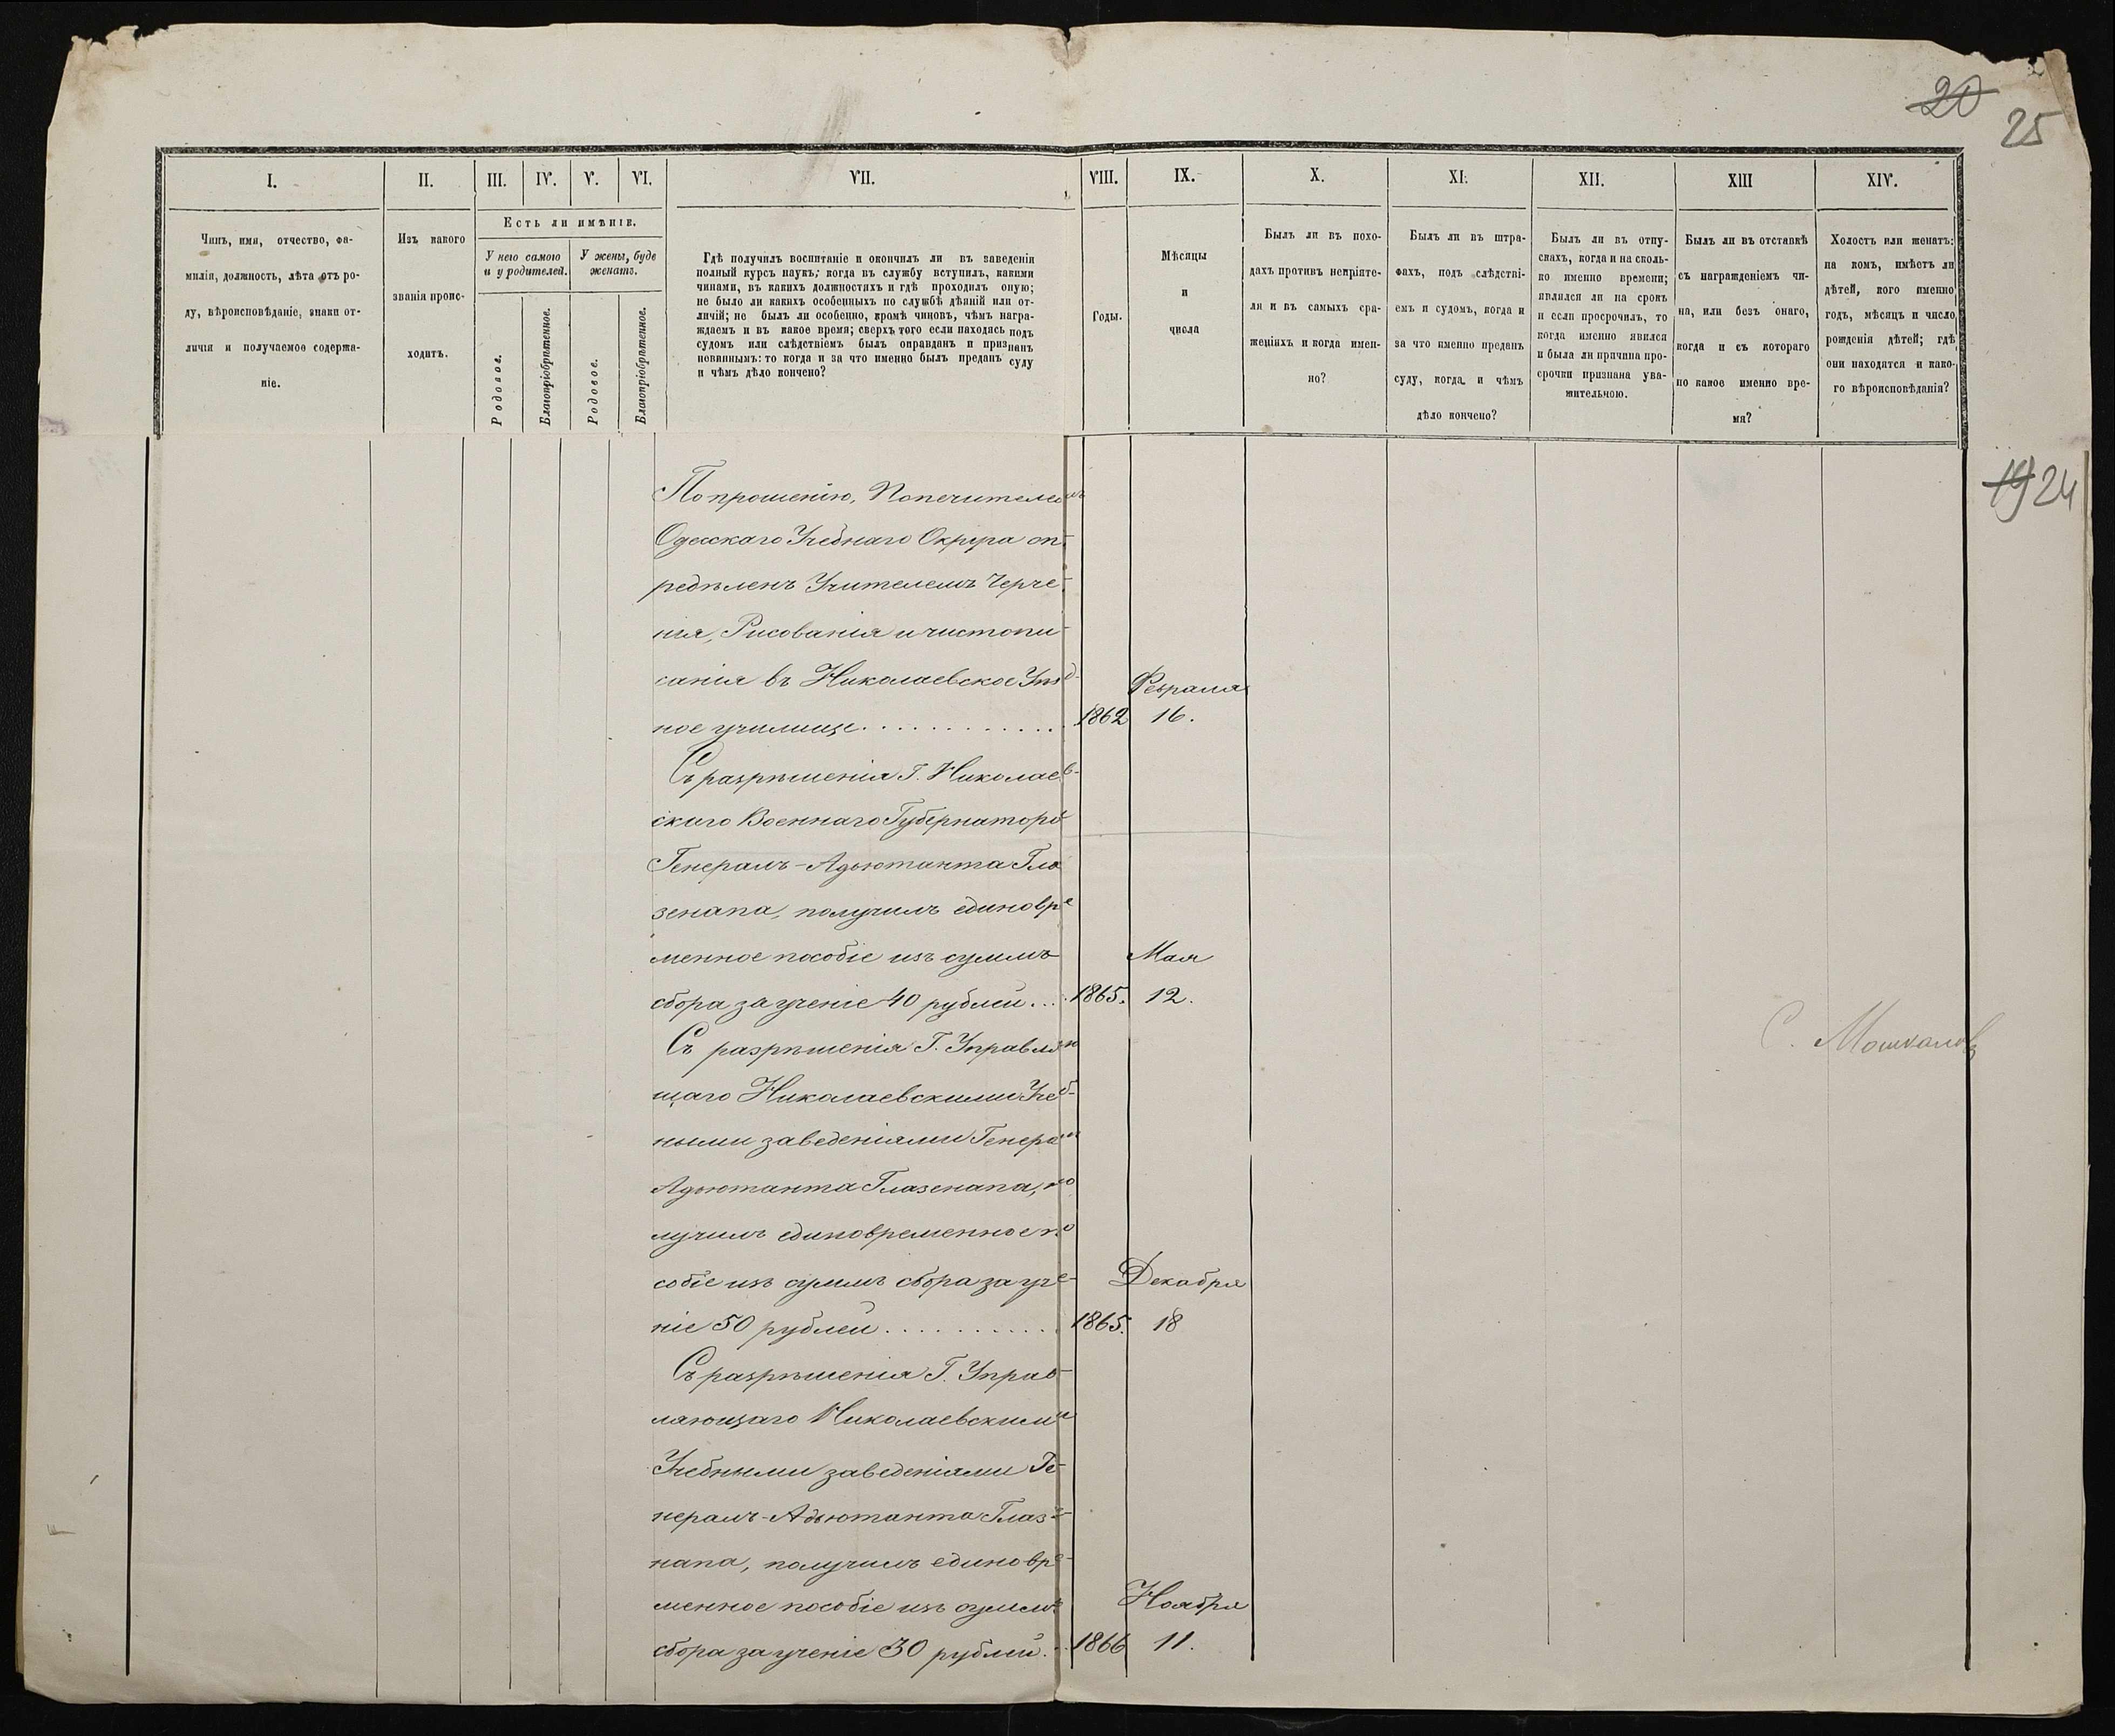 20
25
I.
II.
III.
IV.
V.
VI.
VII.
VIII.
IX.
X.
XI.
XII.
XIII
XIV.
Чинъ, имя, отчество, фа-
милія, должность, лѣта отъ ро-
ду, вѣроисповѣданіе, знаки от-
личія и получаемое содержа-
ніе.
Изъ какого
званія проис-
ходитъ.
Есть ли имѣніе.
У него самого
и у родителей.
У жены, буде
женатъ.
Родовое.
Благопріобрѣтенное.
Родовое.
Благопріобрѣтенное.
Гдѣ получилъ воспитаніе и окончилъ ли въ заведеніи
полный курсъ наукъ; когда въ службу вступилъ, какими
чинами, въ какихъ должностяхъ и гдѣ проходилъ оную;
не было ли какихъ особенныхъ по службѣ дѣяній или от-
личій; не былъ ли особенно, кромѣ чиновъ, чѣмъ награ-
ждаемъ и въ какое время; сверхъ того если находясь подъ
судомъ или слѣдствіемъ былъ оправданъ и признанъ
невиннымъ: то когда и за что именно былъ преданъ суду
и чѣмъ дѣло кончено?
Годы.
Мѣсяцы
и
числа
Былъ ли въ похо-
дахъ противъ непріяте-
ля и въ самыхъ сра-
женіяхъ и когда имен-
но?
Былъ ли въ штра-
фахъ, подъ слѣдстві-
емъ и судомъ, когда и
за что именно преданъ
суду, когда и чѣмъ
дѣло кончено?
Былъ ли въ отпу-
скахъ, когда и на сколь-
ко именно времени;
являлся ли на срокъ
и если просрочилъ, то
когда именно явился
и была ли причина про-
срочки признана ува-
жительною.
Былъ ли въ отставкѣ
съ награжденіемъ чи-
на, или безъ онаго,
когда и съ котораго
по какое именно вре-
мя?
Холостъ или женатъ:
на комъ, имѣетъ ли
дѣтей, кого именно
годъ, мѣсяцъ и число
рожденія дѣтей; гдѣ
они находятся и како-
го вѣроисповѣданія?
19 24
По прошенію, Попечителемъ
Одесскаго Учебнаго Округа оп-
редѣленъ Учителемъ Черче-
нія, Рисованія и чистопи-
санія въ Николаевское Уѣзд-
ное училище. . . . . . . . . . . . 1862 Февраля 16.
Съ разрѣшенія Г. Николаев-
скаго Военнаго Губернатора
Генералъ-Адъютанта Гла
зенапа, получилъ единовре
менное пособіе изъ суммъ
сбора за ученіе 40 рублей. . . . 1865. Мая 12.
Съ разрѣшенія Г. Управляю
щаго Николаевскими Учеб-
ными заведеніями Генералъ
Адъютанта Глазенапа, по
лучилъ единовременное по
собіе изъ суммъ сбора за уче-
ніе 50 рублей. . . . . . . . . . . 1865. Декабря 18
Съ разрѣшенія Г. Управ-
ляющаго Николаевскими
Учебными заведеніями Ге-
нералъ-Адъютанта Глазе-
напа, получилъ единовре-
менное пособіе изъ суммъ
сбора за ученіе 30 рублей. . . 1866 Ноября 11.
С. Мошкалов